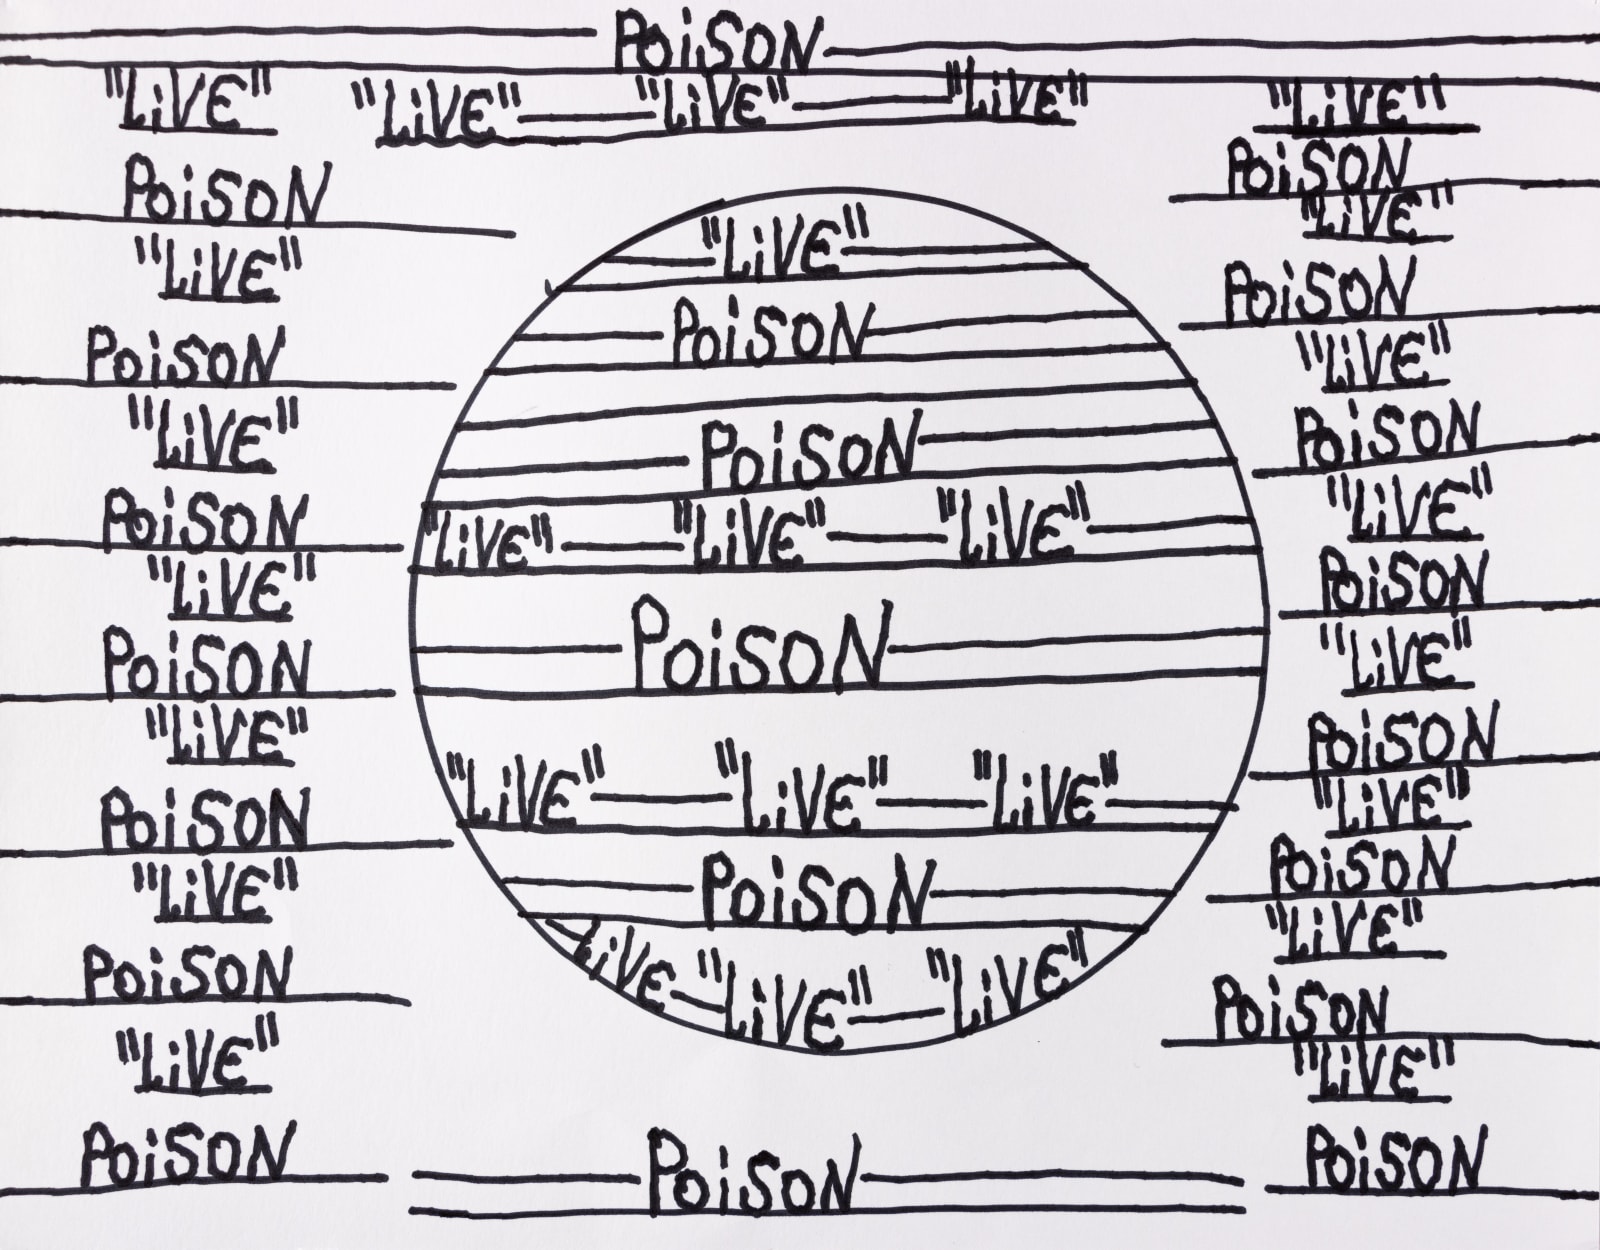 PoiSON
"LiVE" "LiVE" "LiVE" "LiVE" "LiVE"
PoiSON
"LiVE"
PoiSON
"LiVE"
PoiSON
"LiVE"
PoiSON
"LiVE"
PoiSON
"LiVE"
PoiSON
"LiVE"
PoiSON
"LiVE"
PoiSON
PoiSON
"LiVE" "LiVE" "LiVE"
PoiSON
"LiVE" "LiVE" "LiVE"
PoiSON
LiVE "LiVE" "LiVE"
PoiSON
PoiSON
"LiVE"
PoiSON
"LiVE"
PoiSON
"LiVE"
PoiSON
"LiVE"
PoiSON
"LiVE"
PoiSON
"LiVE"
PoiSON
"LiVE"
PoiSON